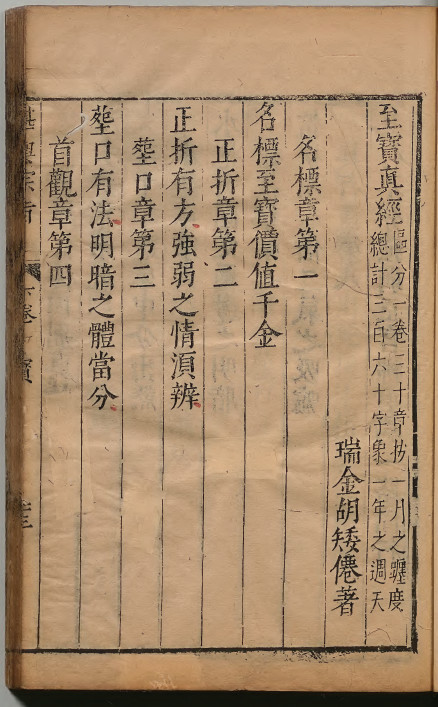 至寶真經
區分一卷三十章抄一月之躔度
總計三百六十字象一年之週天
瑞金胡矮僊著
名標章第一
名標至寶價值千金
正折章第二
正折有方強弱之情湏辨
塟口章第三
塟口有法明暗之體當分
首觀章第四